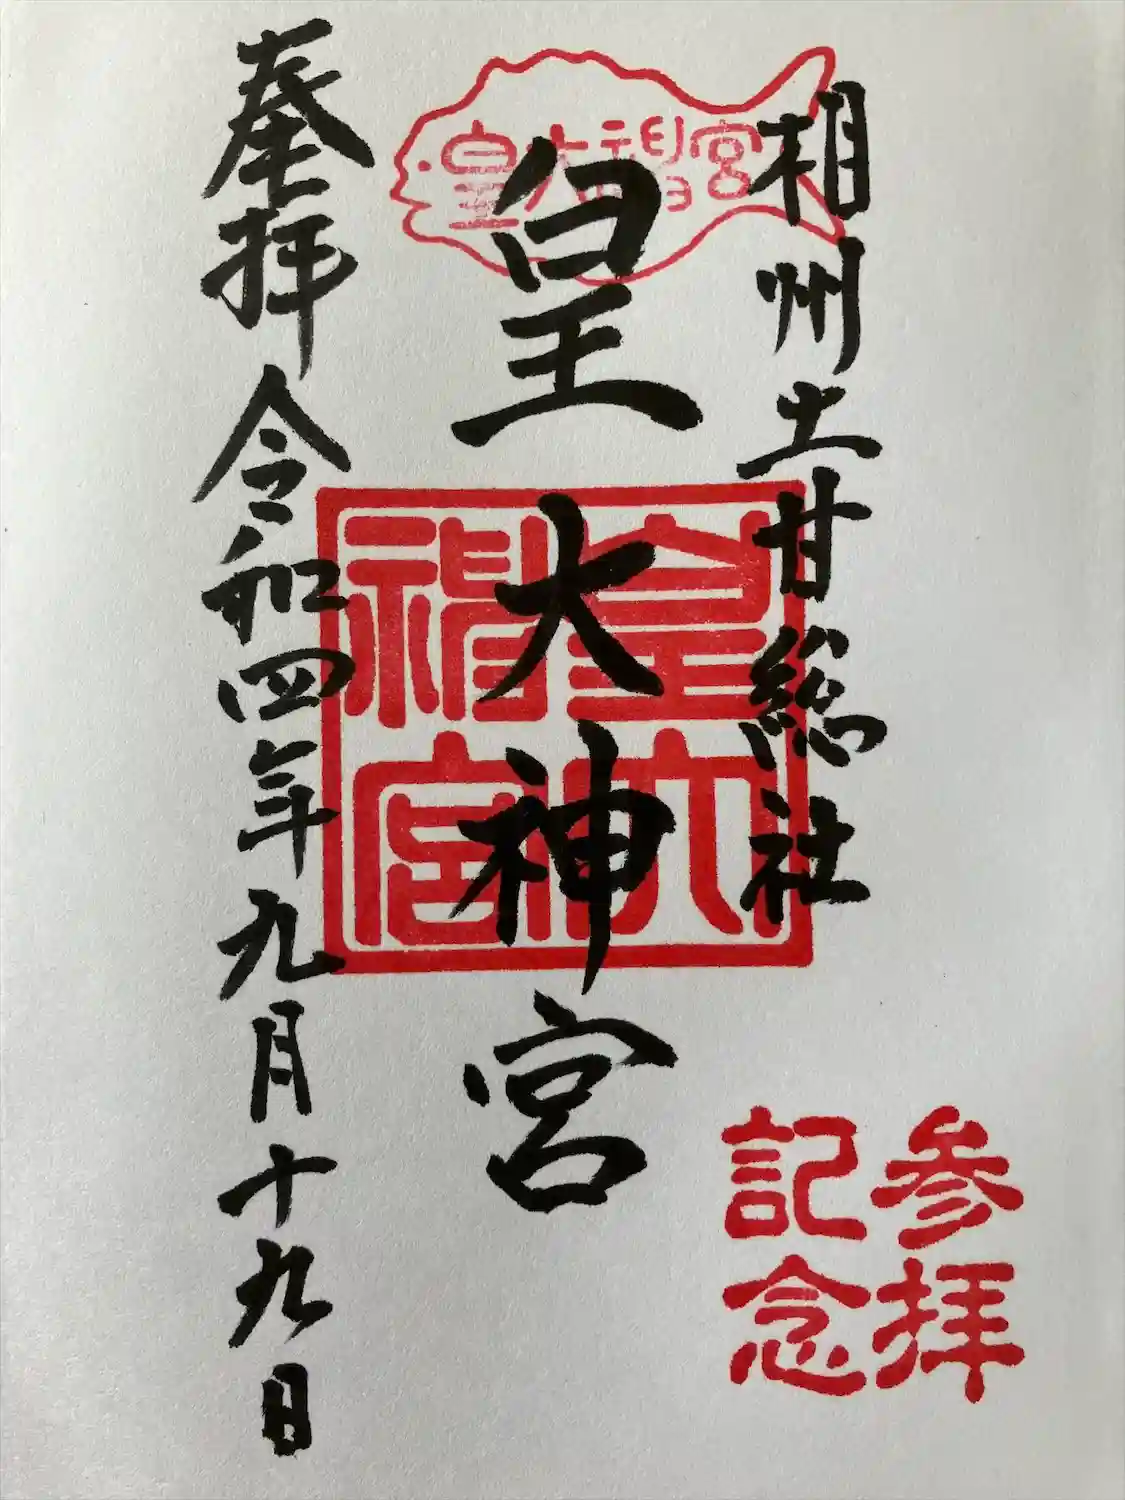 相州土甘総社
皇大神宮
皇大神宮
皇大神宮
奉拝 令和四年九月十九日
参拝
記念